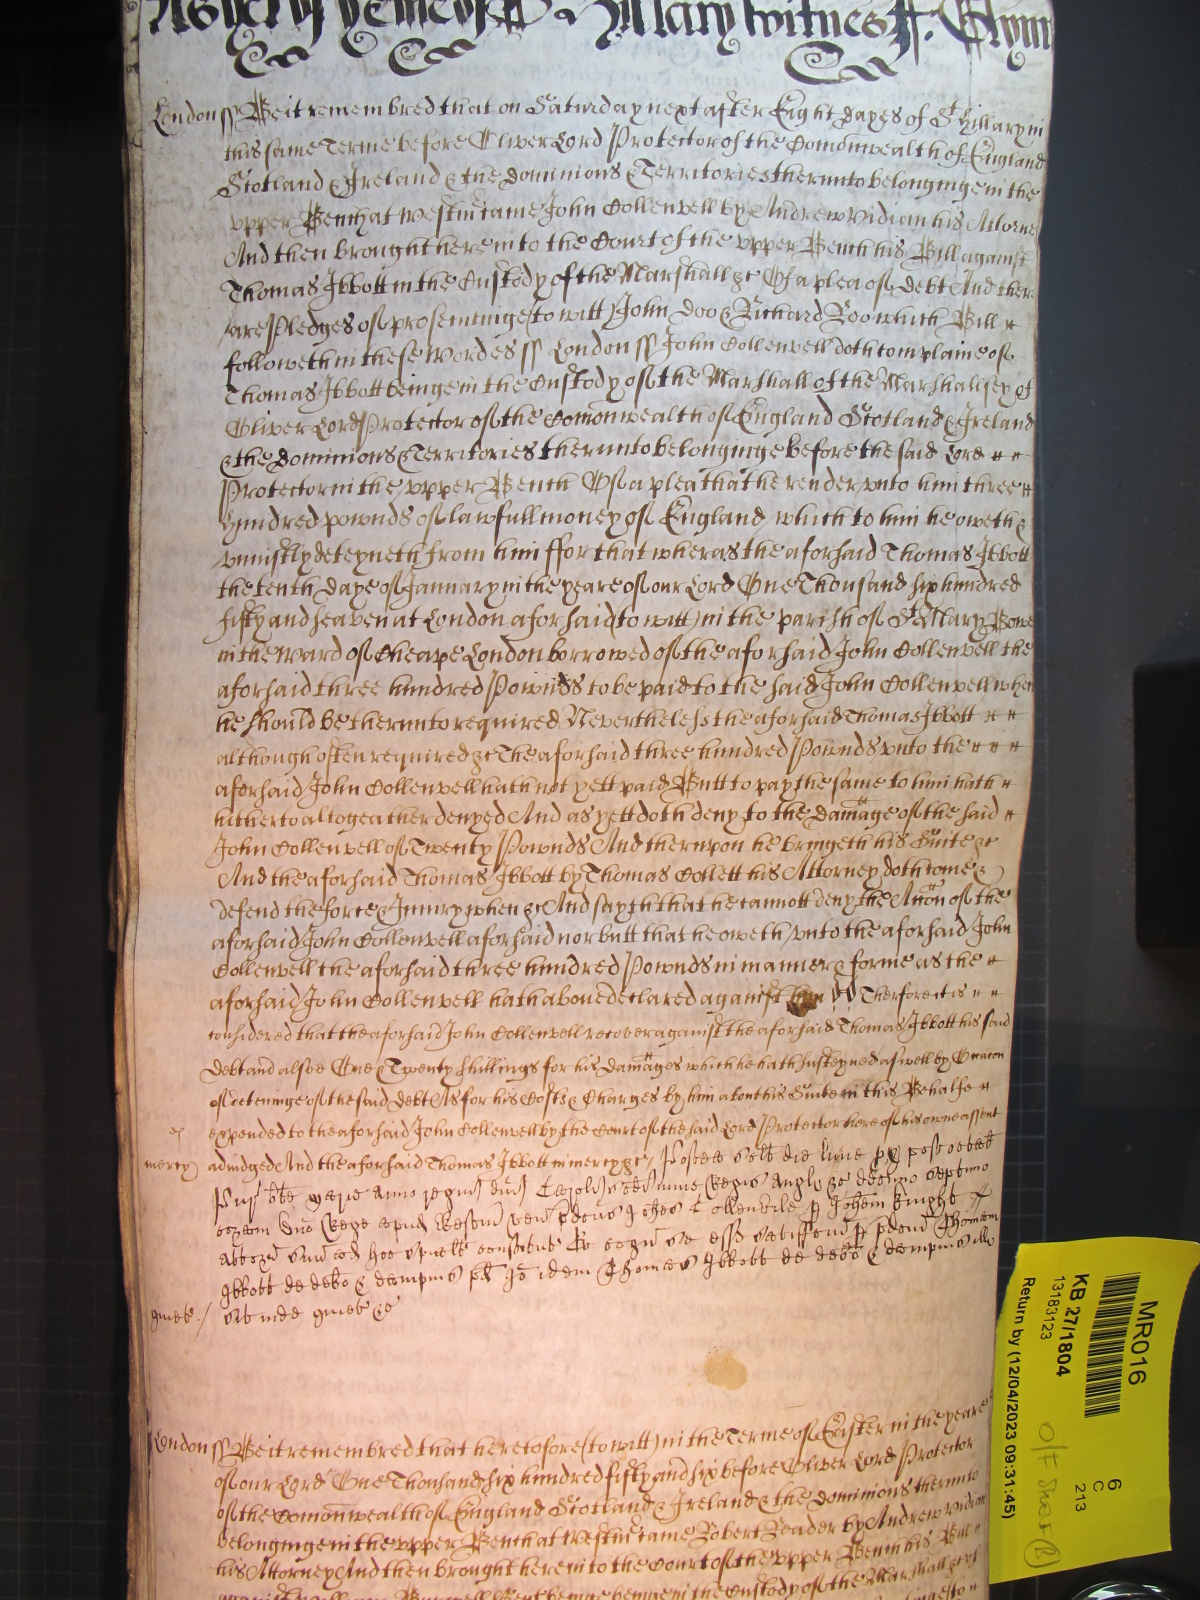 Mary witnes
London ss Be it remembred that on Saturday next after Eight dayes of St Hillary in
this same Terme before Oliver Lord Protector of the Comonwealth of England
Scotland & Ireland & the dominions & Territories therunto belonginge in the
vpper Bench at Westm came John Collenvell by Andrew Vidian his Attorne
And then brought here into the Court of the vpper Bench his Bill against
Thomas Jbbott in the Custody of the Marshall &c Of a plea of debt And there
are Pledges of prosecutinge (to witt) John Doo & Richard Roo which Bill
followeth in these wordes ss London ss John Collenvell doth complaine of
Thomas Jbbott beinge in the Custody of the Marshall of the Marshallsey of
Oliver Lord Protector of the Comonwealth of England Scotland & Ireland
& the dominions & Territories therunto belonginge before the said Lord
Protector in the vpper Bench Of a plea that he render vnto him three
Hundred pownds of lawfull money of England which to him he oweth &
vniustly deteyneth from him ffor that wheras the aforsaid Thomas Jbbott
the tenth daye of January in the yeare of our Lord One Thousand six hundred
fifty and seaven at London aforsaid (to witt) in the parish of St Mary Bowe
in the ward of Cheape London borrowed of the aforsaid John Collenvell the
aforsaid three hundred Pownds to be paid to the said John Collenvell when
he should be therunto required Neverthelesse the aforsaid Thomas Jbbott
although often required &c The aforsaid three hundred Pownds vnto the
aforsaid John Collenvell hath not yett paid Butt to pay the same to him hath
hitherto altogeather denyed And as yett doth deny to the damage of the said
John Collenvell of Twenty Pownds And therupon he bringeth his Suite &c
And the aforsaid Thomas Jbbott by Thomas Collett his Attorney doth come &
defend the force & Iniury when &c And sayth that he cannott deny the Accon of the
aforsaid John Collenvell aforsaid nor butt that he oweth vnto the aforsaid John
Collenvell the aforsaid three hundred Pownds in manner & forme as the
aforsaid John Collenvell hath above declared against him Therfore it is
considered that the aforsaid John Collenvell recover against the aforsaid Thomas Jbbott his said
debt and alsoe One & Twenty shillings for his damages which he hath susteyned aswell by Occacon
of deteninge of the said debt As for his Costs & Charges by him about his Suite in this Behalfe
expended to the aforsaid John Collenvell by the Court of the said Lord Protector here of his owne assent
mercy adiudged And the aforsaid Thomas Jbbott in mercy &c Postea scilt die lune px post octab
Pur bte marie anno regni dni Caroli scdi nunc Regis Angl &c decimo septimo
coram dno Rege apud Westm ven pdcus Johes Collenvile p Johem Knight
attorn suu
Jbbott de debo & dampnis pd Jo idem Thomas Jbbott de debo & dampnis ill
sit inde quiet &c
London ss Be it remembred that heretofore (to witt) in the Terme of Easter in the yeare
of our Lord One Thousand six hundred fifty and six before Oliver Lord Protector
of the Comonwealth of England Scotland & Ireland & the dominions therunto
belonginge in the vpper Bench at Westm came Robert Reader by Andrew Vidian
his Attorney And then brought here into the Court of the vpper Bench his Bill
beinge in the Custody of the Marshall
MR016
6
C
213
KB 27/1804
13183123
Return by (12/04/2023 09:31:45)